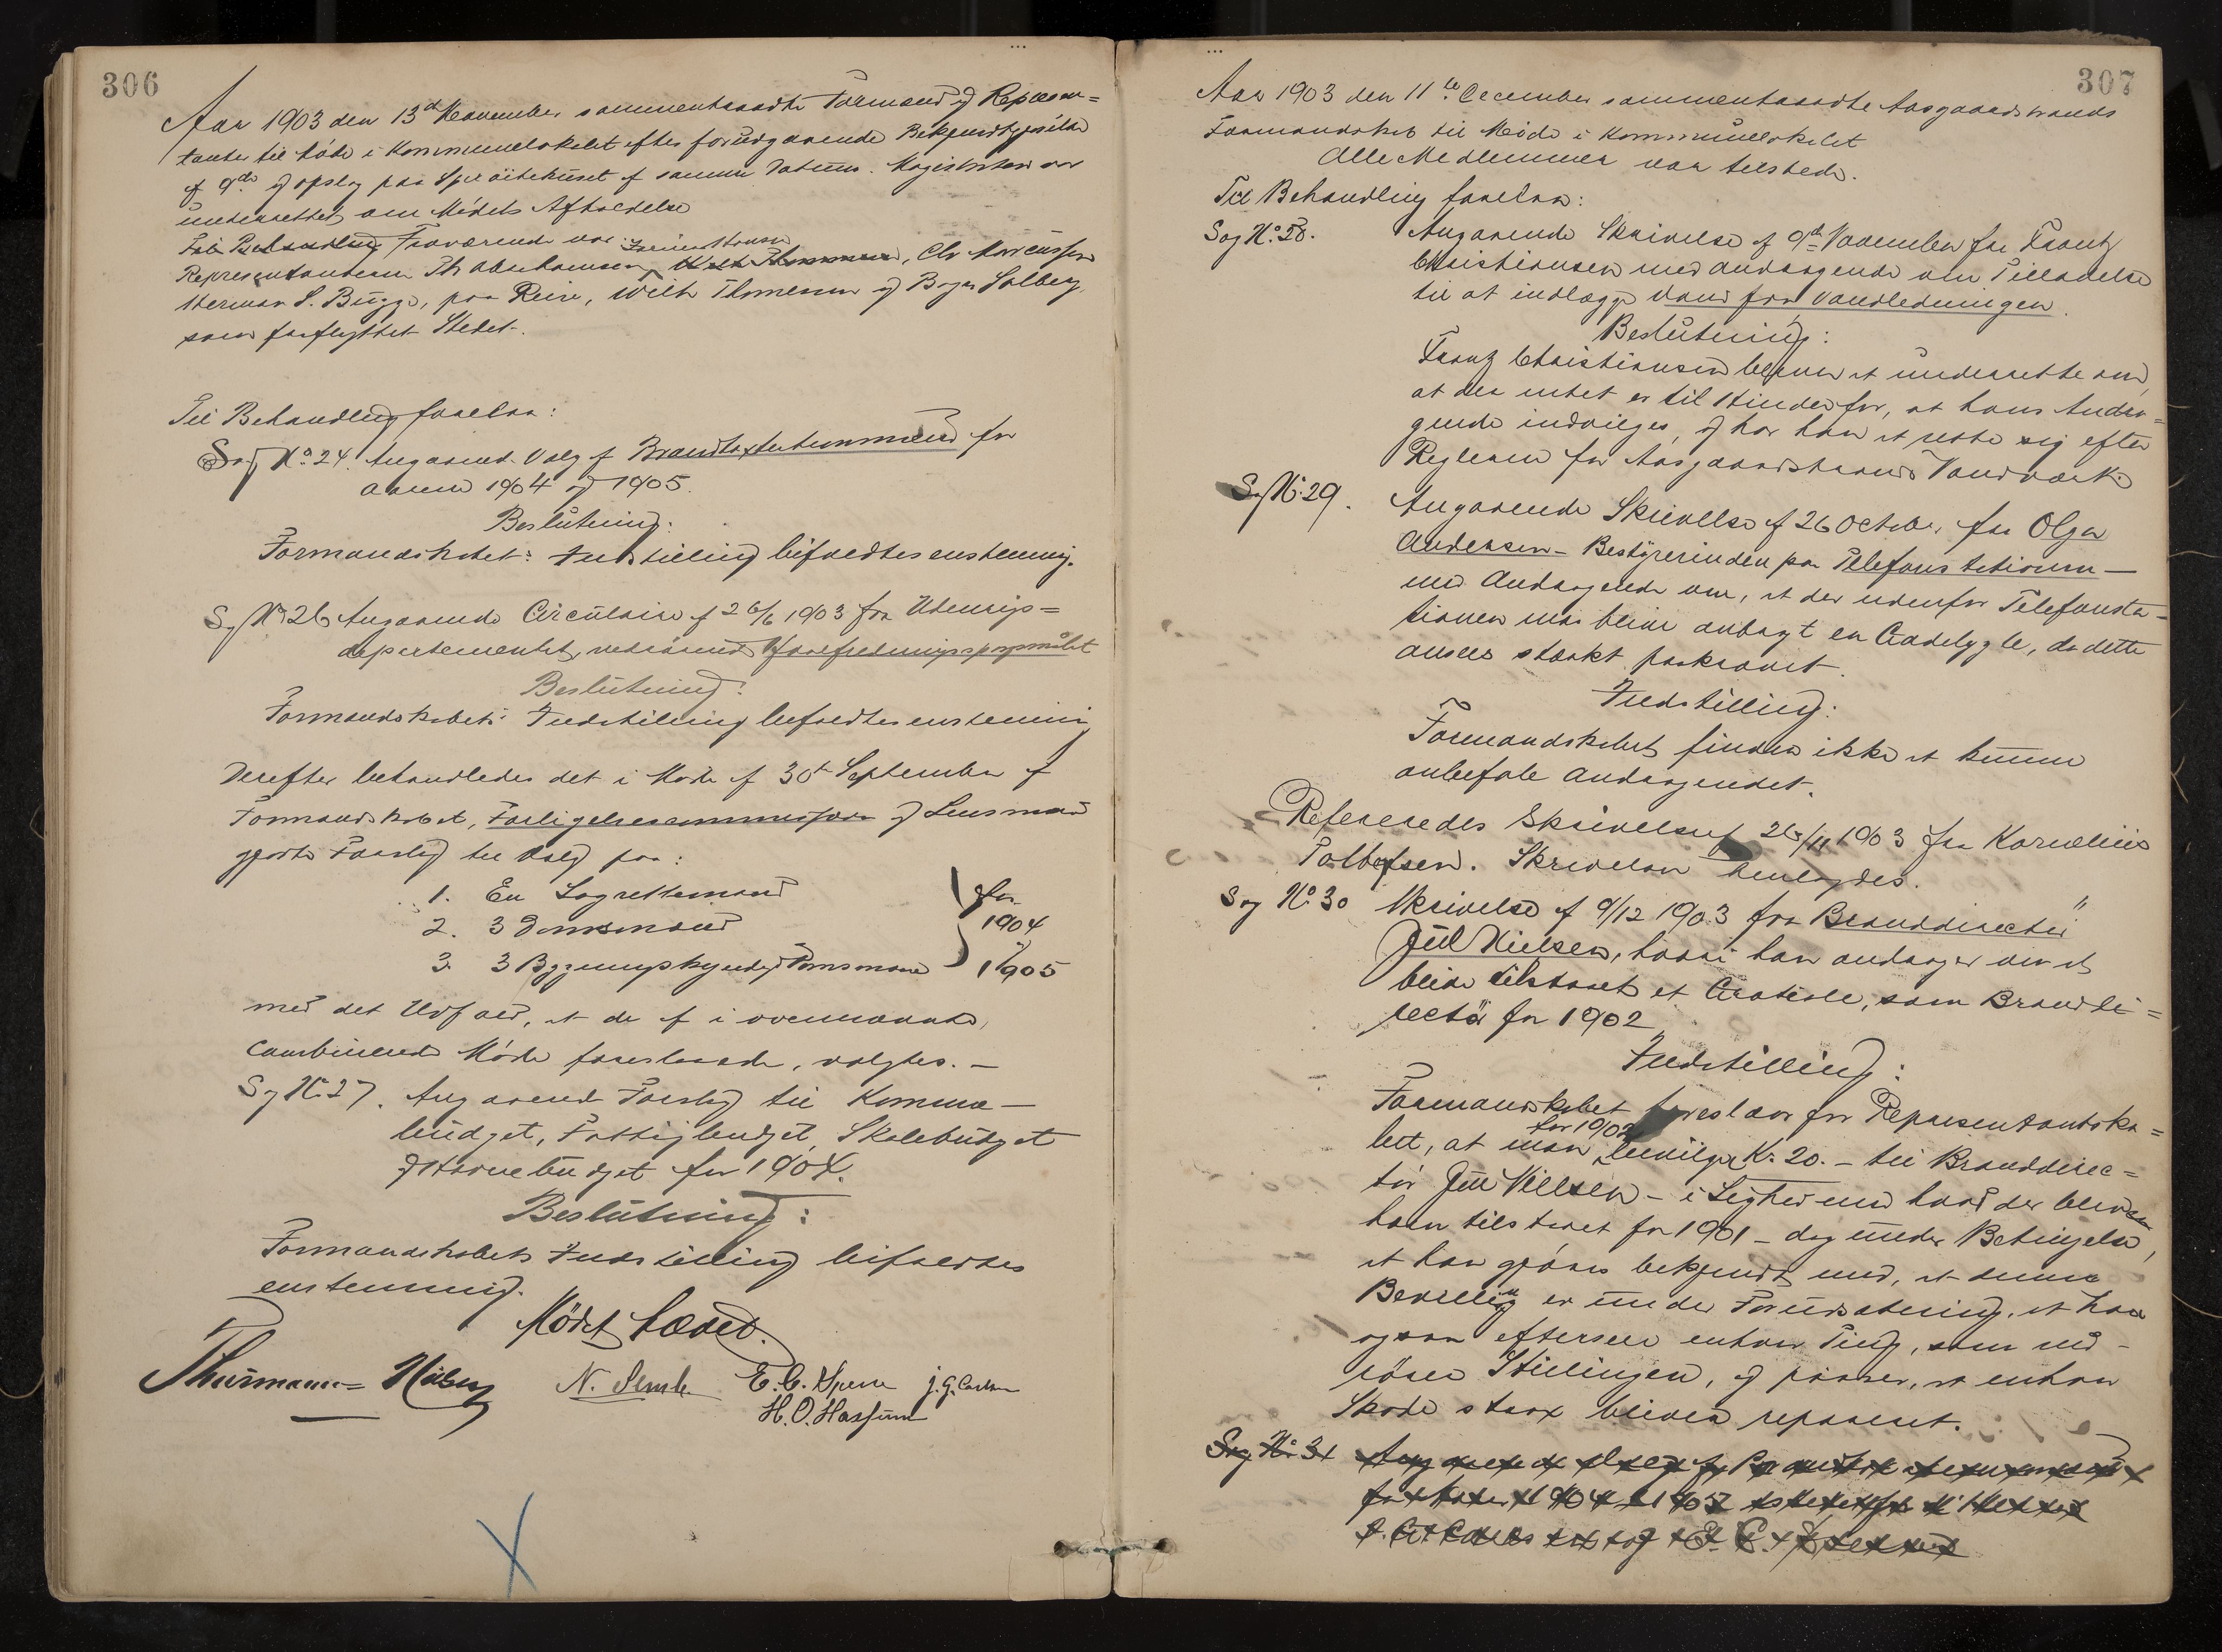 306
Aar 1903 den 13de November sammentraadte Formænd og Repræsen=
tanter til Møde i Kommunelokalet efter forudgaaende Bekjendtgjørelse
af 9de og opslag paa Sprøitehuset af samme Datum. Magistraten var
underrettet om Mødets Afholdelse
Til Behandling Fraværende var
Representanterne Th Abrahamsen, Chr Marcussen
Herman S. Bugge, paa Reise, Wilh Thomesen og Solberg,
som forflyttet Stedet.
Til Behandling forelaa:
Sag No 24. Angaaend. Valg af Brandtaxtationsmænd for
aarene 1904 og 1905.
Beslutning:
Formandskabet: Indstilling bifaldtes enstemmig.
Sag No 26 Angaaende Circulaire af 26/6 1903 fra Utenrigs=
departementet, vedrørende Varefredningsspørsmålet
Beslutning:
Formandskabets Indstilling bifaldtes enstemmig
Derefter behandledes det i Møde af 30te September af
Formandskabet, Forligelsescommission og Lensmand
gjorte Forslag til Valg paa:
1. En Lagrettemand
2. 3 Domsmænd
3. 3 Bygningskyndige Domsmænd
for
1904
og
1905
med det Udfald, at de af i ovennævnte,
Combinerede Møde foreslaaede, valgtes. —
Sag No 27. Angaaend Forslag til Kommune—
budget, Fattigbudget, Skolebudget
og Havnebudget for 1904.
Beslutning:
Formandskabets Indstilling bifaldtes
enstemmig.
Mødet hævet.
Thurmann= N. E. C. J. G. Carlsen
H. O. Hassum
307
Aar 1903 den 11te December sammentraadte Aasgaardstrands
Formandskab til Møde i Kommunelokalet
Alle Medlemmer var tilstede.
Til Behandling forelaa:
Sag No. 28. Angaaende Skrivelse af 9de November fra Frantz
Christiansen med andragende om Tilladelse
til at indlægge Vand fra Vandledningen.
Beslutning:
Frantz Christiansen bliver at underrette om,
at der intet er til Hinder for, at hans Andra=
gende indvilges, og har han at rette sig efter
Reglerne for Aasgaardstrands Vandværk.
Sag No. 29. Angaaende Skrivelse af 26 October fra Olga
Andersen – Bestyrerinden paa Telefonstationen —
med Andragende om, at der udenfor Telefonsta=
tionen maa blive anbragt en Gadelygte, da dette
ansees stærkt paakrævet.
Indstilling:
Formandskabet finder ikke at kunne
anbefale Andragendet.
Refereredes Skrivelse af 26/11 1903 fra Kornelius
Tollefsen. Skrivelsen henlagdes.
Sag No 30 Skrivelse af 9/12 1903 fra Branddirectør
Jul Nielsen, hvori han andrager om at
blive tilstaaet et Gratiale, som Branddi=
rectør for 1902.
Indstilling:
Formandskabet foreslaar for Repræsentantska=
bet, at man for 1902 bevilger Kr. 20. – til Branddirec=
tør Jul Nielsen – i Lighed med hvad der blev
ham tilstaaet for 1901 – dog under Betingelse,
at han gjøres bekjendt med, at denne
Bevilling er under Forudsætning, at han
ogsaa efterseer enhver Ting, som ved-
rører Stillingen, og paaser, at enhver
Skade strax bliver repareret.
Sag No 31